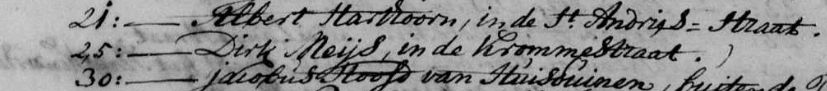 21: — Albert Harthoorn, in de St. Andries= Straat.
25: — Dirk Meijs, in de Kromme Straat.
30: — jacobus Hoofd van Huisduinen, buiten de